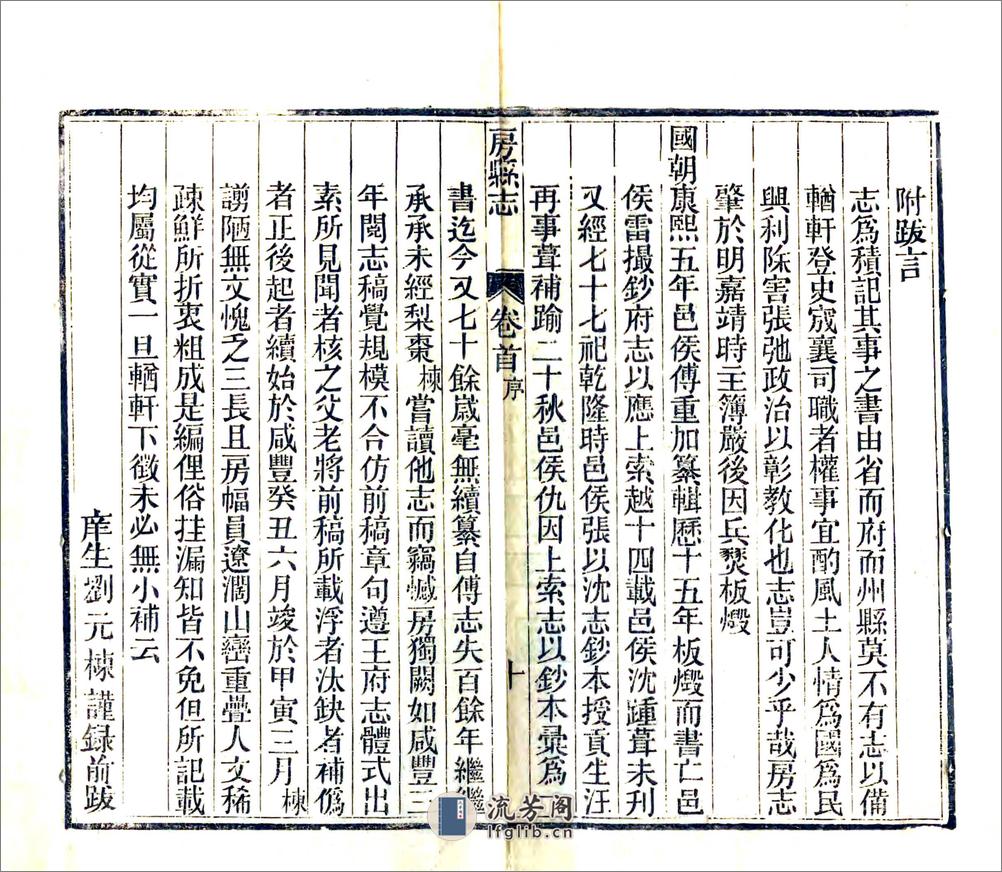 附跋言
志爲積記其事之書由省而府而州縣莫不有志以備
輶軒登史宬襄司職者權事宜酌風土人情爲國爲民
興利除害張弛政治以彰教化也志豈可少乎哉房志
肇於明嘉靖時主簿嚴後因兵燹板燬
國朝康熙五年邑侯傅重加纂輯歷十五年板燬而書亡邑
侯雷撮鈔府志以應上索越十四載邑侯沈踵葺未刋
又經七十七祀乾隆時邑侯張以沈志鈔本授貢生汪
再事葺補踰二十秋邑侯仇因上索志以鈔本彙爲
房縣志 卷首 序 十
書迄今又七十餘歲毫無續纂自傅志失百餘年繼繼
承承未經梨棗棟嘗讀他志而竊慽房獨闕如咸豐三
年閱志稿覺規模不合仿前稿章句遵王府志體式出
素所見聞者核之父老將前稿所載浮者汰缺者補僞
者正後起者續始於咸豐癸丑六月竣於甲寅三月棟
謭陋無文愧乏三長且房幅員遼濶山巒重疊人文稀
疎鮮所折衷粗成是編俚俗挂漏知皆不免但所記載
均屬從實一旦輶軒下徵未必無小補云
庠生劉元棟謹録前跋
流芳阁
lfglib.cn